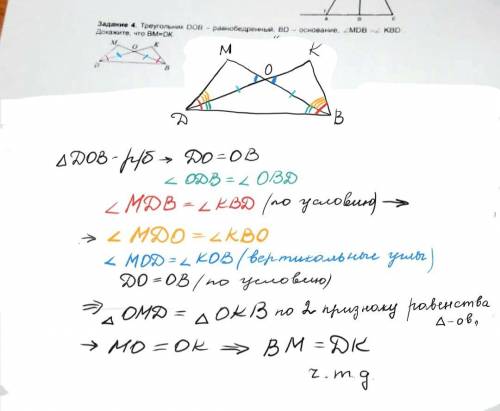 Задание 4. Треугольник DOB - равнобедренный, BD - основание, ∠MDB = ∠KBD
Докажите, что BM=DK.
M K
O
D B
M K
O
D B
△DOB - р/б → DO = OB
∠ODB = ∠OBD
∠MDB = ∠KBD (по условию) →
→ ∠MDO = ∠KBO
∠MOD = ∠KOB (вертикальные углы)
DO = OB (по условию)
⇒ △OMD = △OKB по 2 признаку равенства
△-ов,
→ MO = OK ⇒ BM = DK
ч.т.д